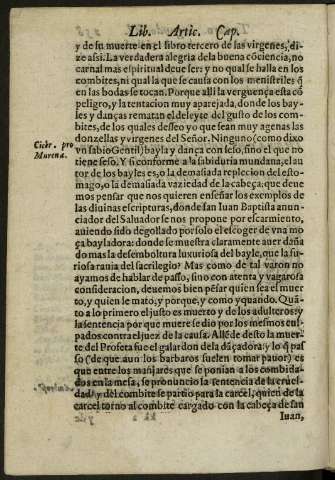 Lib. Artic. Cap.
y de su muerte en el libro tercero de las virgenes, di-
ze assi. La verdadera alegria de la buena cõciencia, no
carnal mas espiritual deue ser: y no qual se halla en los
combites, ni qual la que se causa con los menistriles q̃
en las bodas se tocan. Porque alli la verguença esta cõ
peligro, y la tentacion muy aparejada, donde los bay-
les y danças rematan el deleyte del gusto de los com-
bites, de los quales desseo yo que sean muy agenas las
donzellas y virgenes del Señor. Ninguno (como dixo
Cicer. pro
Murena.
vn sabio Gentil) bayla y dança con seso, sino el que no
tiene seso. Y si conforme a la sabiduria mundana, el au
tor de los bayles es, o la demasiada replecion del esto-
mago, o la demasiada vaziedad de la cabeça, que deue
mos pensar que nos quieren enseñar los exemplos de
las diuinas escripturas, donde san Iuan Baptista anun-
ciador del Saluador se nos propone por escarmiento,
auiendo sido degollado por solo el escoger de vna mo
ça bayladora: donde se muestra claramente auer daña
do mas la desemboltura luxuriosa del bayle, que la fu-
riosa rauia del sacrilegio? Mas como de tal varon no
ayamos de hablar de passo, sino con atenta y vagarosa
consideracion, deuemos bien pesar quien sea el muer
to, y quien le mato, y porque, y como y quando. Quã-
to a lo primero el justo es muerto y de los adulteros: y
la sentencia por que muere se dio por los mesmos cul-
pados contra el juez de la causa. Allẽde desto la muer-
te del Profeta fue el galardon de la dãçadora: y lo q̃ pas
so (de que aun los barbaros suelen tomar pauor) es
que entre los manjares que se ponian a los combida-
dos en la mesa, se pronuncio la sentencia de la cruel-
dad: y del combite se partio para la carcel, quien de la
carcel torno al combite cargado con la cabeça de san
Iuan,